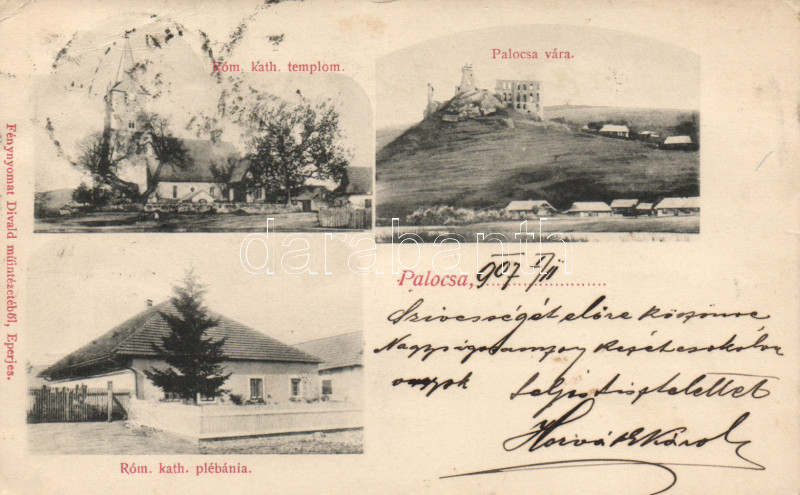 Róm. kath. templom.
Palocsa vára.
Fénynyomat Divald műintézetéből, Eperjes.
darabanth.com
Palocsa, 907
Szivességét előre köszönve
Nagyságos kezét csókolva
teljes tisztelettel
Horváth Károly
Róm. kath. plébánia.